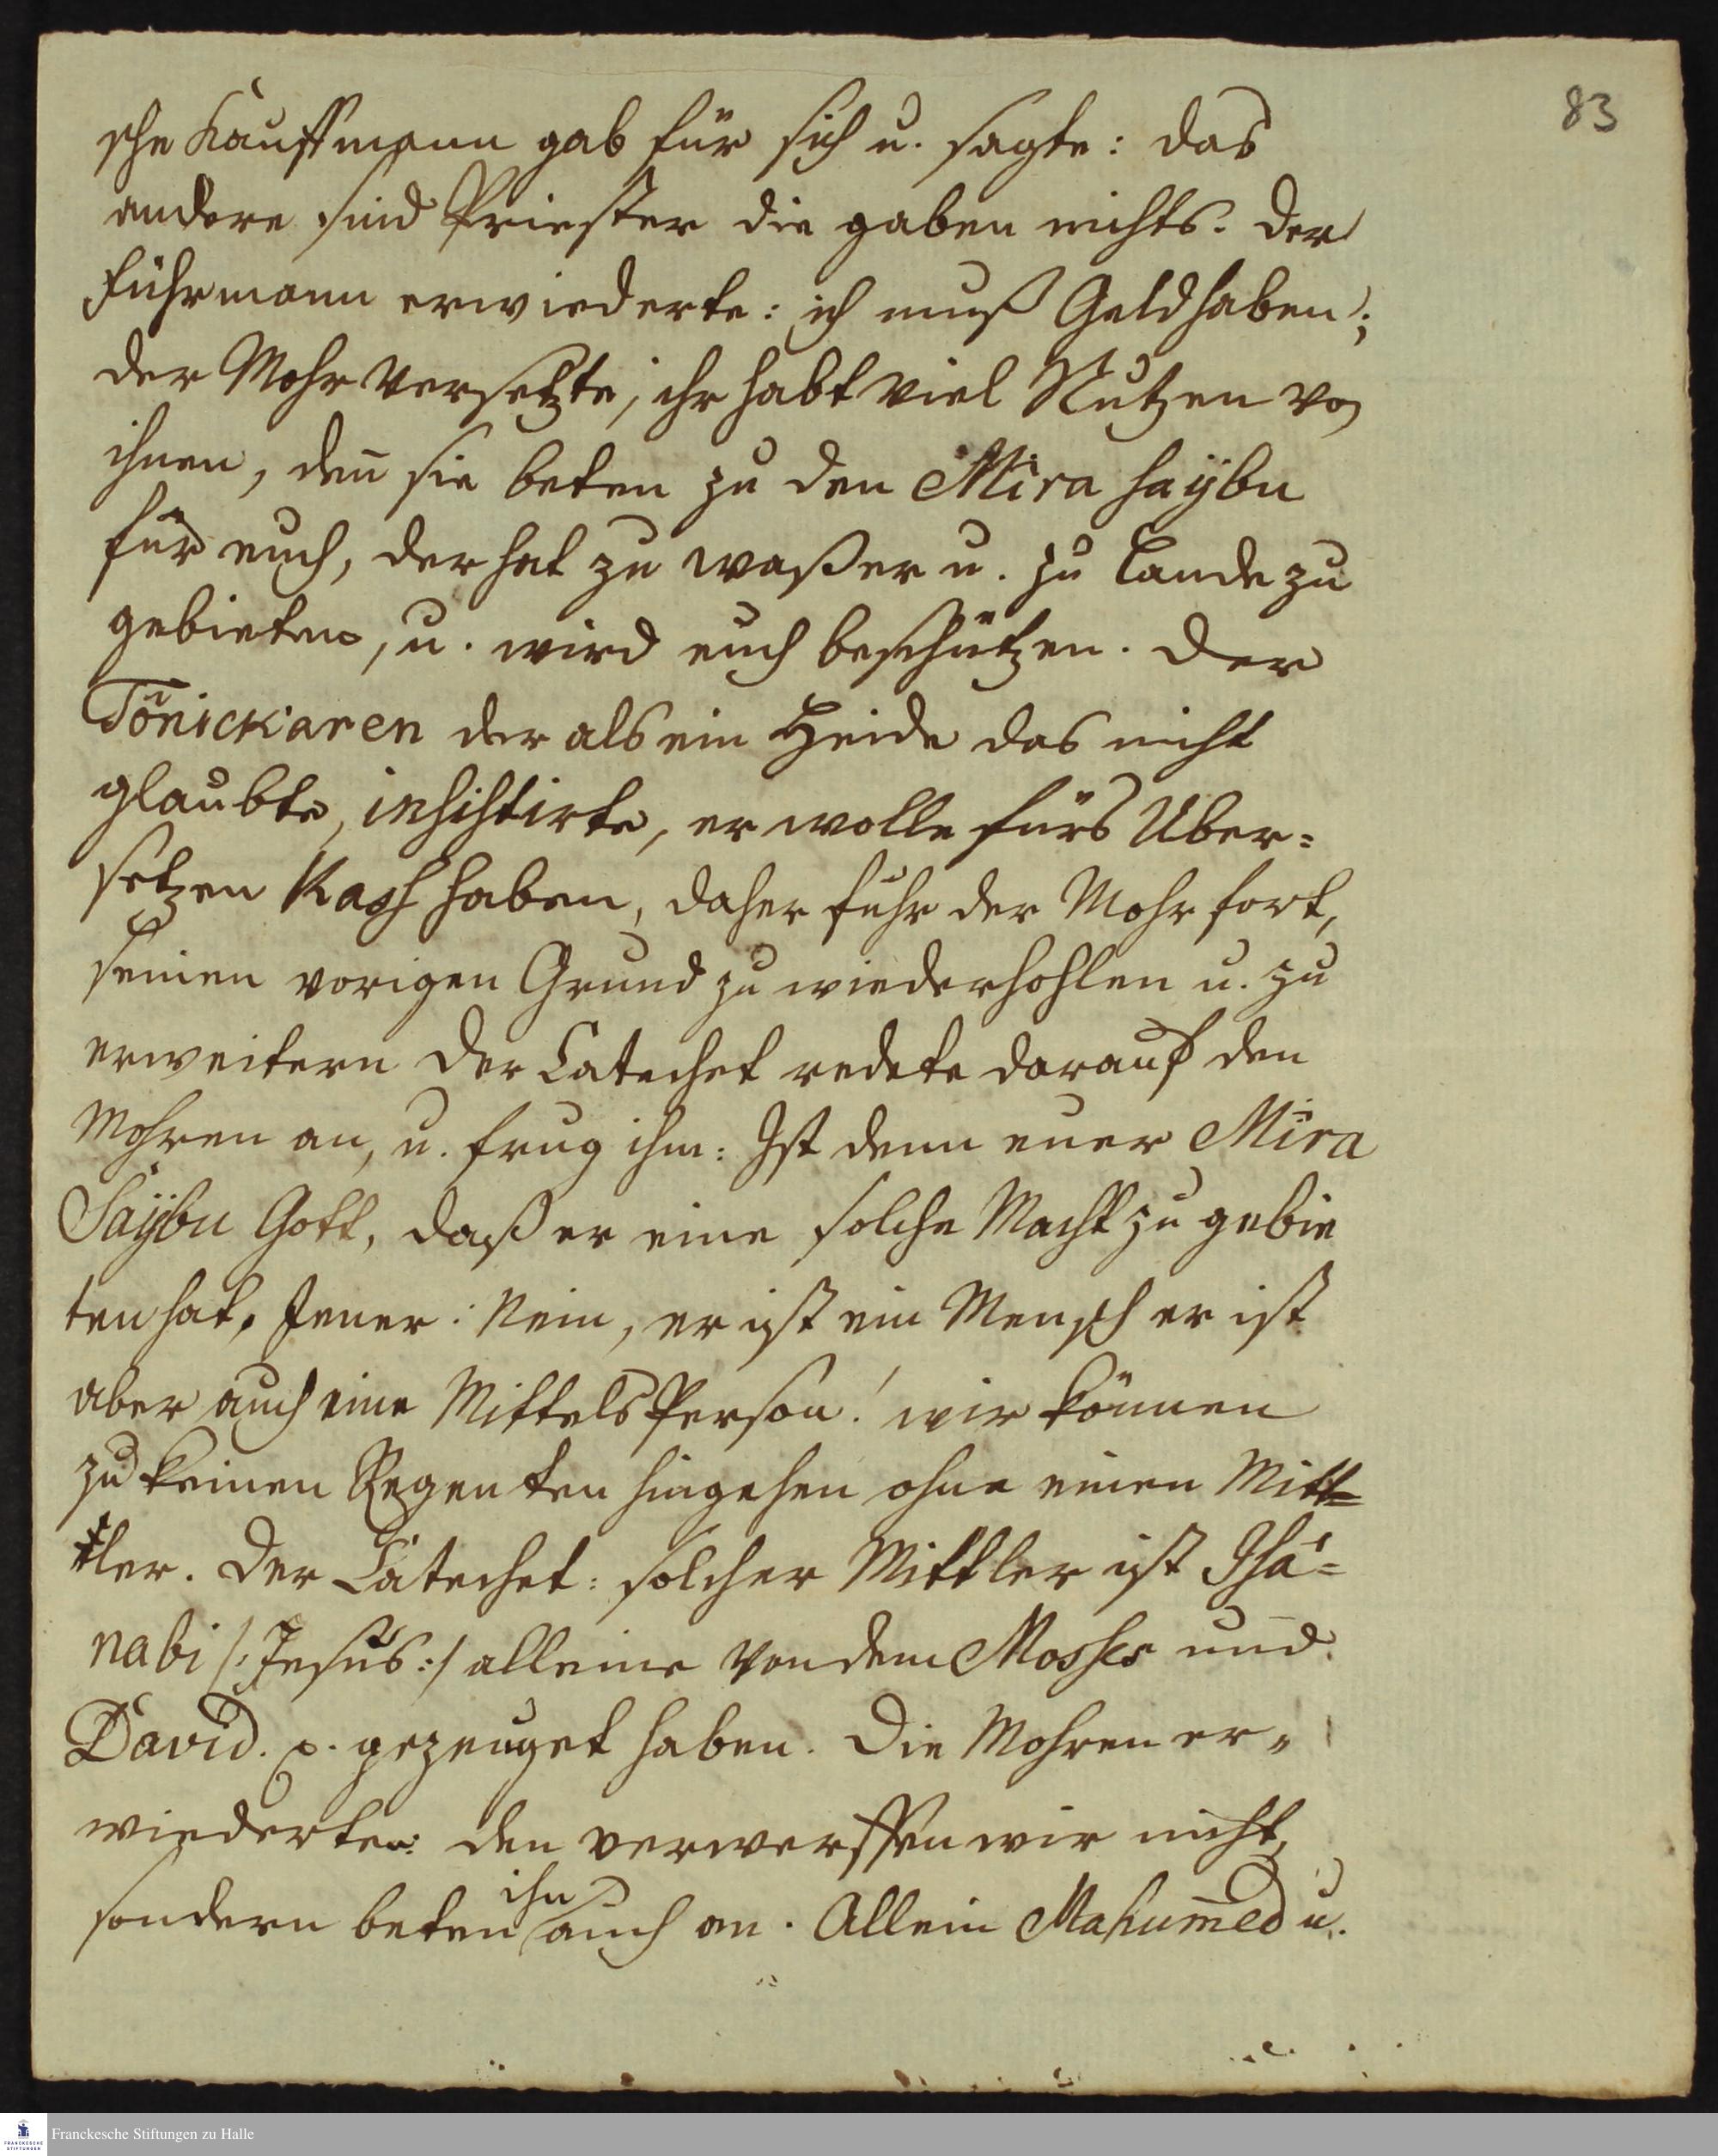 83
sche Kauffmann gab für sich u. sagte: das
andere sind Priester die gaben nichts. der
Führmann erwiederte: ich muß Geld haben;
der Mohr versetzte, ihr habt viel Nutzen von
ihnen, deñ sie beten zu den Mira saÿbu
für euch, der hat zu waßer u. zu Lande zu
gebieten, u. wird euch beschützen. der
Tönickaren der als ein Heide das nicht
glaubte, insistirte, er wolle fürs Uber=
setzen Kash haben, daher fuhr der Mohr fort,
seinen vorigen Grund zu wiederhohlen u. zu
erweitern der Catechet redete darauf den
Mohren an, u. frug ihm: Ist denn euer Mira
Saÿbu Gott, daß er eine solche Macht zu gebie
ten hat. Jener: Nein, er ist ein Mensch er ist
aber auch eine MittelsPerson! wir können
zu keinen Regenten hingehen ohne einen Mitt=
ler. der Catechet: solcher Mittler ist Isa=
nabi /: Jesus :/ alleine von dem Moses und
David. p. gezeuget haben. Die Mohren er=
wiederten: den verwerffen wir nicht,
sondern beten ihn auch an. Allein Mahumed u.
Franckesche Stiftungen zu Halle